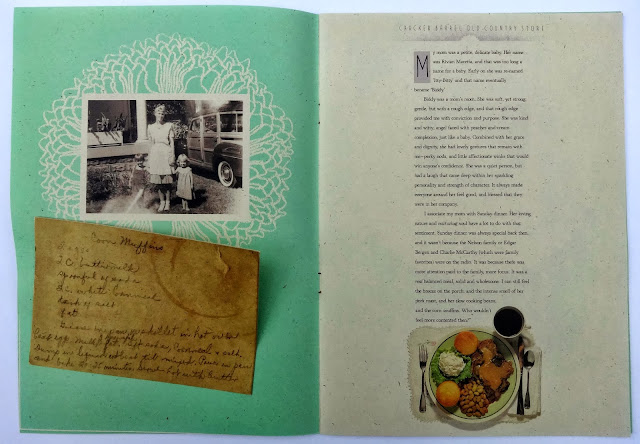 Corn Muffins
2 C buttermilk
spoonful of soda
dash of salt
fat
CRACKER BARREL OLD COUNTRY STORE
My mom was a petite, delicate baby. Her name
was Vivian Maretta, and that was too long a
name for a baby. Early on she was re-named
'Itty-Bitty' and that name eventually
became 'Biddy.'
Biddy was a mom's mom. She was soft, yet strong,
gentle, but with a rough edge, and that rough edge
provided me with conviction and purpose. She was kind
and witty, angel faced with peaches and cream
complexion, just like a baby. Combined with her grace
and dignity, she had lovely gestures that remain with
me--perky nods, and little affectionate winks that would
win anyone's confidence. She was a quiet person, but
had a laugh that came deep within her sparkling
personality and strength of character. It always made
everyone around her feel good, and blessed that they
were in her company.
I associate my mom with Sunday dinner. Her loving
nature and nurturing soul have a lot to do with that
sentiment. Sunday dinner was always special back then,
and it wasn't because the Nelson family or Edgar
Bergen and Charlie McCarthy (which were family
favorites) were on the radio. It was because there was
more attention paid to the family, more focus. It was a
real balanced meal, solid and wholesome. I can still feel
the breeze on the porch, and the intense smell of her
pork roast, and her slow cooking beans,
and the corn muffins. Why wouldn't
I feel more contented then?"